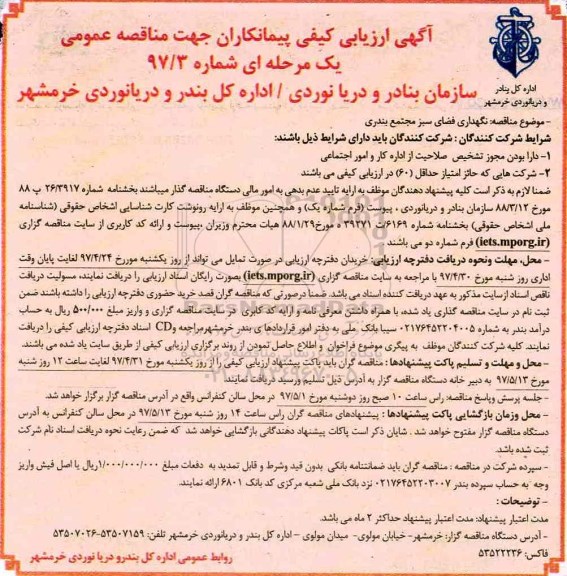 آگهی ارزیابی کیفی پیمانکاران جهت مناقصه عمومی
یک مرحله ای شماره ۹۷/۳
سازمان بنادر و دریا نوردی / اداره کل بندر و دریانوردی خرمشهر
اداره کل بنادر
و دریانوردی خرمشهر
- موضوع مناقصه: نگهداری فضای سبز مجتمع بندری
شرایط شرکت کنندگان : شرکت کنندگان باید دارای شرایط ذیل باشند:
۱- دارا بودن مجوز تشخیص صلاحیت از اداره کار و امور اجتماعی
۲- شرکت هایی که حائز امتیاز حداقل (۶۰) در ارزیابی کیفی می باشند
ضمنا لازم به ذکر است کلیه پیشنهاد دهندگان موظف به ارایه تایید عدم بدهی به امور مالی دستگاه مناقصه گذار میباشند بخشنامه شماره ۲۶/۳۹۱۷ پ ۸۸
مورخ ۸۸/۳/۱۲ سازمان بنادر و دریانوردی ، پیوست (فرم شماره یک) و همچنین موظف به ارایه رونوشت کارت شناسایی اشخاص حقوقی (شناسنامه
ملی اشخاص حقوقی) بخشنامه شماره ۶۱۶۹/ت ۳۹۲۷۱ ه مورخ ۸۸/۱/۲۹ هیات محترم وزیران بپیوست و ارائه کد کاربری از سایت مناقصه گزاری
(iets.mporg.ir) فرم شماره دو می باشند.
- محل، مهلت ونحوه دریافت دفترچه ارزیابی: خریدان دفترچه ارزیابی در صورت تمایل می تواند از روز یکشنبه موررخ ۹۷/۴/۲۴ لغایت پایان وقت
اداری روز شنبه مورخ ۹۷/۴/۳۰ با مراجعه به سایت مناقصه گزاری (iets.mporg.ir) بصورت رایگان اسناد ارزیابی را دریافت نمایند، مسولیت دریافت
ناقص اسناد ازسایت مذکور به عهد دریافت کننده اسناد می باشد. ضمنا درصورتی که مناقصه گران قصد خرید حضوری دفترچه ارزیابی را داشته باشند ضمن
ثبت نام در سایت مناقصه گذاری یاد شده، با همراه داشتن معرفی نامه و ارایه کد کاربری در سایت مناقصه گزاری و واریز مبلغ ۵۰۰/۰۰۰ ریال به حساب
درآمد بندر به شماره ۰۲۱۷۶۴۵۲۲۰۴۰۰۵ سیبا بانک ملی به دفتر امور قراردادها ی بندر خرمشهرمراجعه و CD اسناد دفترچه ارزیابی کیفی را دریافت
نمایند. کلیه شرکت کنندگان موظف به پیگیری موضوع فراخوان و اطلاع حاصل نمودن از روند برگزاری ارزیابی کیفی از طریق سایت یاد شده می باشند.
- محل و مهلت و تسلیم پاکت پیشنهادها : مناقصه گران باید پاکت پیشنهاد ارزیابی کیفی را از روز یکشنبه مورخ ۹۷/۴/۳۱ لغایت ساعت ۱۲ روز شنبه
مورخ ۹۷/۵/۱۳ به دبیر خانه دستگاه مناقصه گزار به آدرس ذیل تسلیم ورسید دریافت نمایند.
- جلسه پرسش وپاسخ مناقصه: راس ساعت ۱۰ صبح روز دوشنبه مورخ ۹۷/۵/۱ در محل سالن کنفرانس واقع در آدرس مناقصه گزار برگزار خواهد شد.
- محل وزمان بازگشایی پاکت پیشنهادها : پیشنهادهای مناقصه گران راس ساعت ۱۴ روز شنبه مورخ ۹۷/۵/۱۳ در محل سالن کنفرانس به آدرس
دستگاه مناقصه گزار مفتوح خواهد شد . شایان ذکر است پاکات پیشنهاد دهندگانی بازگشایی خواهد شد که ضمن رعایت نحوه دریافت اسناد نام شرکت
ثبت شده باشد.
- سپرده شرکت در مناقصه : مناقصه گران باید ضمانتنامه بانکی بدون قید وشرط و قابل تمدید به دفعات مبلغ ۱/۰۰۰/۰۰۰/۰۰۰ریال یا اصل فیش واریز
وجه به حساب سپرده بندر ۰۲۱۷۶۴۵۲۲۰۳۰۰۷ نزد بانک ملی شعبه مرکزی کد بانک ۶۸۰۱ ارائه نمایند.
- توضیحات :
مدت اعتبار پیشنهاد: مدت اعتبار پیشنهاد حداکثر ۲ ماه می باشد.
- آدرس دستگاه مناقصه گزار: خرمشهر- خیابان مولوی- میدان مولوی - اداره کل بندر و دریانوردی خرمشهر تلفن: ۵۳۵۰۷۱۵۹-۵۳۵۰۷۰۲۶
فاکس: ۵۳۵۲۲۲۳۶
روابط عمومی اداره کل بندرو دریا نوردی خرمشهر